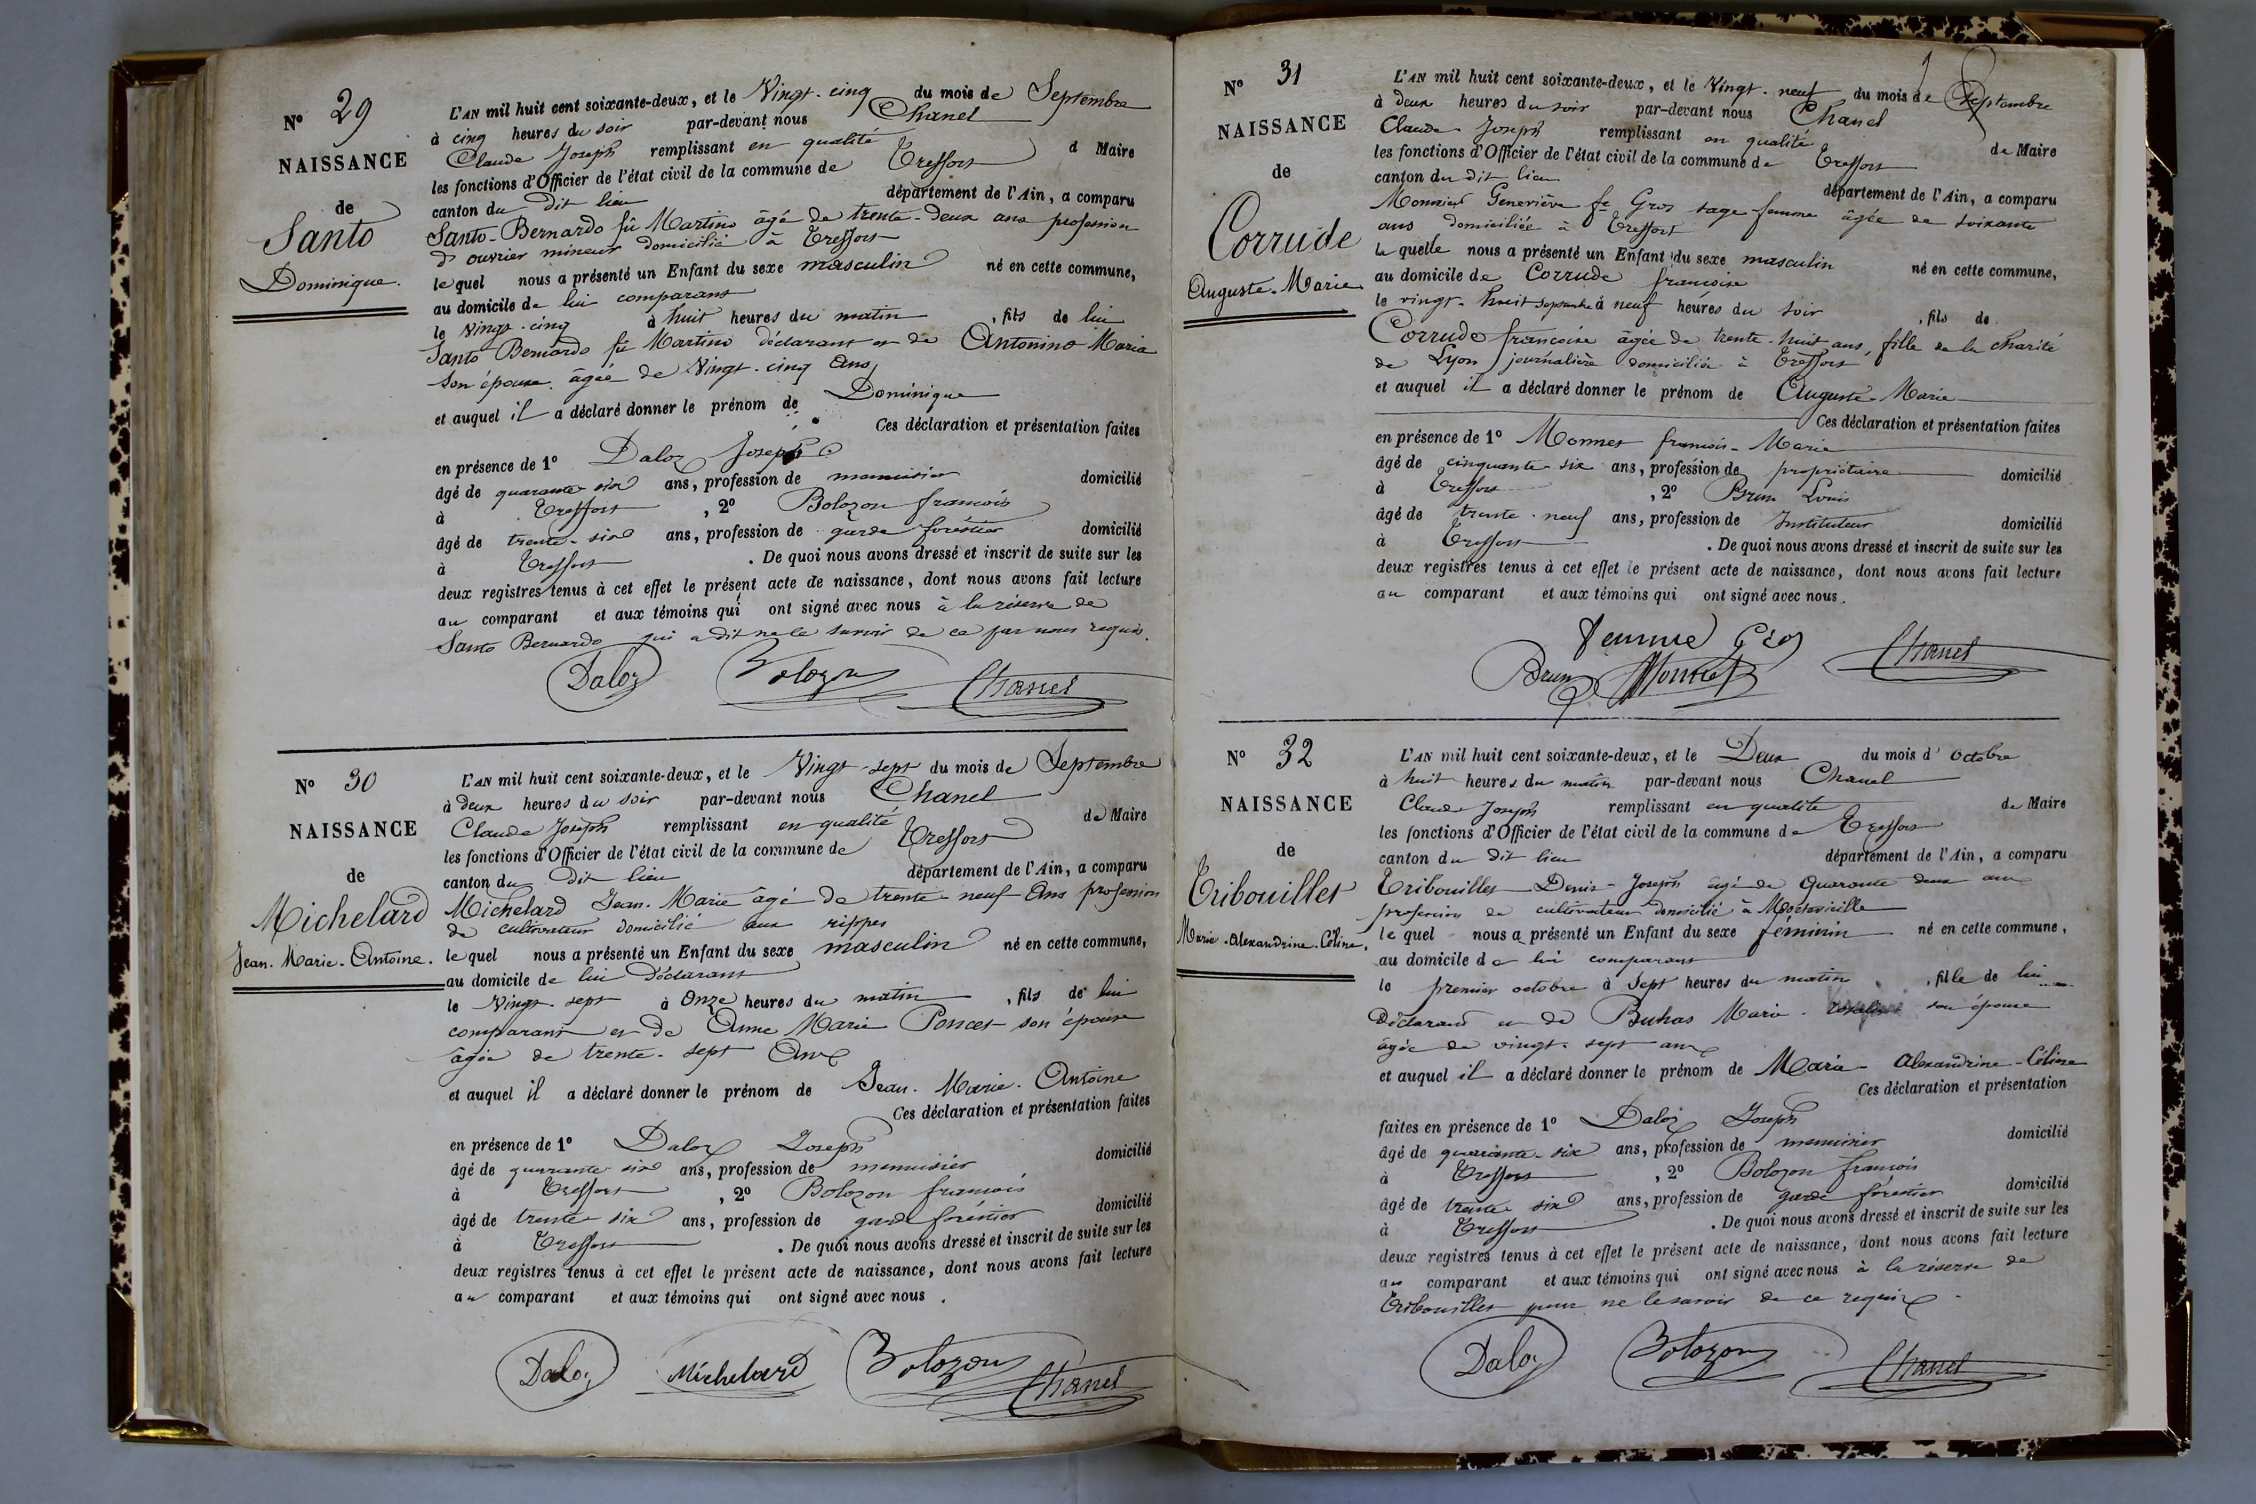 N° 29
NAISSANCE
de
Santo
Dominique.
L'AN mil huit cent soixante-deux, et le Vingt-cinq du mois de Septembre
à cinq heures du soir par-devant nous Chanel
Claude Joseph remplissant en qualité d Maire
les fonctions d'Officier de l'état civil de la commune de Treffort
canton du dit lieu département de l'Ain, a comparu
Santo-Bernardo fû Martino âgé de trente-deux ans profession
d'ouvrier mineur domicilié à Treffort
le quel nous a présenté un Enfant du sexe masculin né en cette commune,
au domicile de lui comparant
le Vingt-cinq à huit heures du matin , fils de lui
Santo Bernardo fû Martino déclarant et de Antonino Maria
son épouse âgée de Vingt-cinq ans
et auquel il a déclaré donner le prénom de Dominique
Ces déclaration et présentation faites
en présence de 1° Daloz Joseph
âgé de quarante six ans, profession de menuisier domicilié
à Treffort , 2° Bolozon francois
âgé de trente-six ans, profession de garde forestier domicilié
à Treffort . De quoi nous avons dressé et inscrit de suite sur les
deux registres tenus à cet effet le présent acte de naissance, dont nous avons fait lecture
au comparant et aux témoins qui ont signé avec nous à la réserve de
Santo Bernardo qui a dit ne le savoir de ce par nous requis.
Daloz Bolozon Chanel
N° 30
NAISSANCE
de
Michelard
Jean-Marie-Antoine.
L'AN mil huit cent soixante-deux, et le Vingt-sept du mois de Septembre
à deux heures du soir par-devant nous Chanel
Claude Joseph remplissant en qualité de Maire
les fonctions d'Officier de l'état civil de la commune de Treffort
canton du dit lieu département de l'Ain, a comparu
Michelard Jean-Marie âgé de trente-neuf ans profession
de cultivateur domicilié aux rippes
le quel nous a présenté un Enfant du sexe masculin né en cette commune,
au domicile de lui Déclarant
le Vingt-sept à Onze heures du matin , fils de lui
comparant et de Anne Marie Poncet son épouse
âgée de trente-sept Ans
et auquel il a déclaré donner le prénom de Jean-Marie-Antoine
Ces déclaration et présentation faites
en présence de 1° Daloz Joseph
âgé de quarante six ans, profession de menuisier domicilié
à Treffort , 2° Bolozon francois
âgé de trente-six ans, profession de garde forestier domicilié
à Treffort . De quoi nous avons dressé et inscrit de suite sur les
deux registres tenus à cet effet le présent acte de naissance, dont nous avons fait lecture
au comparant et aux témoins qui ont signé avec nous .
Daloz Michelard Bolozon Chanel
N° 31
NAISSANCE
de
Corrude
Auguste-Marie
L'AN mil huit cent soixante-deux, et le Vingt-neuf du mois de Septembre
à deux heures du soir par-devant nous Chanel
Claude-Joseph remplissant en qualité de Maire
les fonctions d'Officier de l'état civil de la commune de Treffort
canton du dit lieu département de l'Ain, a comparu
Geneviève fe Gros sage femme âgée de soixante
ans domiciliée à Treffort
la quelle nous a présenté un Enfant du sexe masculin né en cette commune,
au domicile de Corrude francoise
le vingt-huit septembre à neuf heures du soir , fils de
Corrude francoise âgée de trente-huit ans, fille de la charité
de Lyon journalière domiciliée à Treffort
et auquel il a déclaré donner le prénom de Auguste-Marie
Ces déclaration et présentation faites
en présence de 1° Monnet francois-Marie
âgé de cinquante-six ans, profession de propriétaire domicilié
à Treffort , 2° Brun Louis
âgé de trente-neuf ans, profession de Instituteur domicilié
à Treffort . De quoi nous avons dressé et inscrit de suite sur les
deux registres tenus à cet effet le présent acte de naissance, dont nous avons fait lecture
au comparant et aux témoins qui ont signé avec nous.
femme Gros Chanel
Brun Monnet
N° 32
NAISSANCE
de
Tribouillet
Marie-Alexandrine-Céline.
L'AN mil huit cent soixante-deux, et le Deux du mois d' Octobre
à huit heures du matin par-devant nous Chanel
Claude Joseph remplissant en qualité de Maire
les fonctions d'Officier de l'état civil de la commune de Treffort
canton du dit lieu département de l'Ain, a comparu
Tribouillet Denis-Joseph âgé de Quarante deux ans
profession de cultivateur domicilié à
le quel nous a présenté un Enfant du sexe féminin né en cette commune,
au domicile de lui comparant
le premier octobre à Sept heures du matin , fille de lui
Déclarant et de Marie son épouse
âgée de vingt-sept ans
et auquel il a déclaré donner le prénom de Marie-Alexandrine-Céline
Ces déclaration et présentation
faites en présence de 1° Daloz Joseph
âgé de quarante-six ans, profession de menuisier domicilié
à Treffort , 2° Bolozon francois
âgé de trente six ans, profession de garde forestier domicilié
à Treffort . De quoi nous avons dressé et inscrit de suite sur les
deux registres tenus à cet effet le présent acte de naissance, dont nous avons fait lecture
au comparant et aux témoins qui ont signé avec nous à la réserve de
Tribouillet pour ne le savoir de ce requis.
Daloz Bolozon Chanel